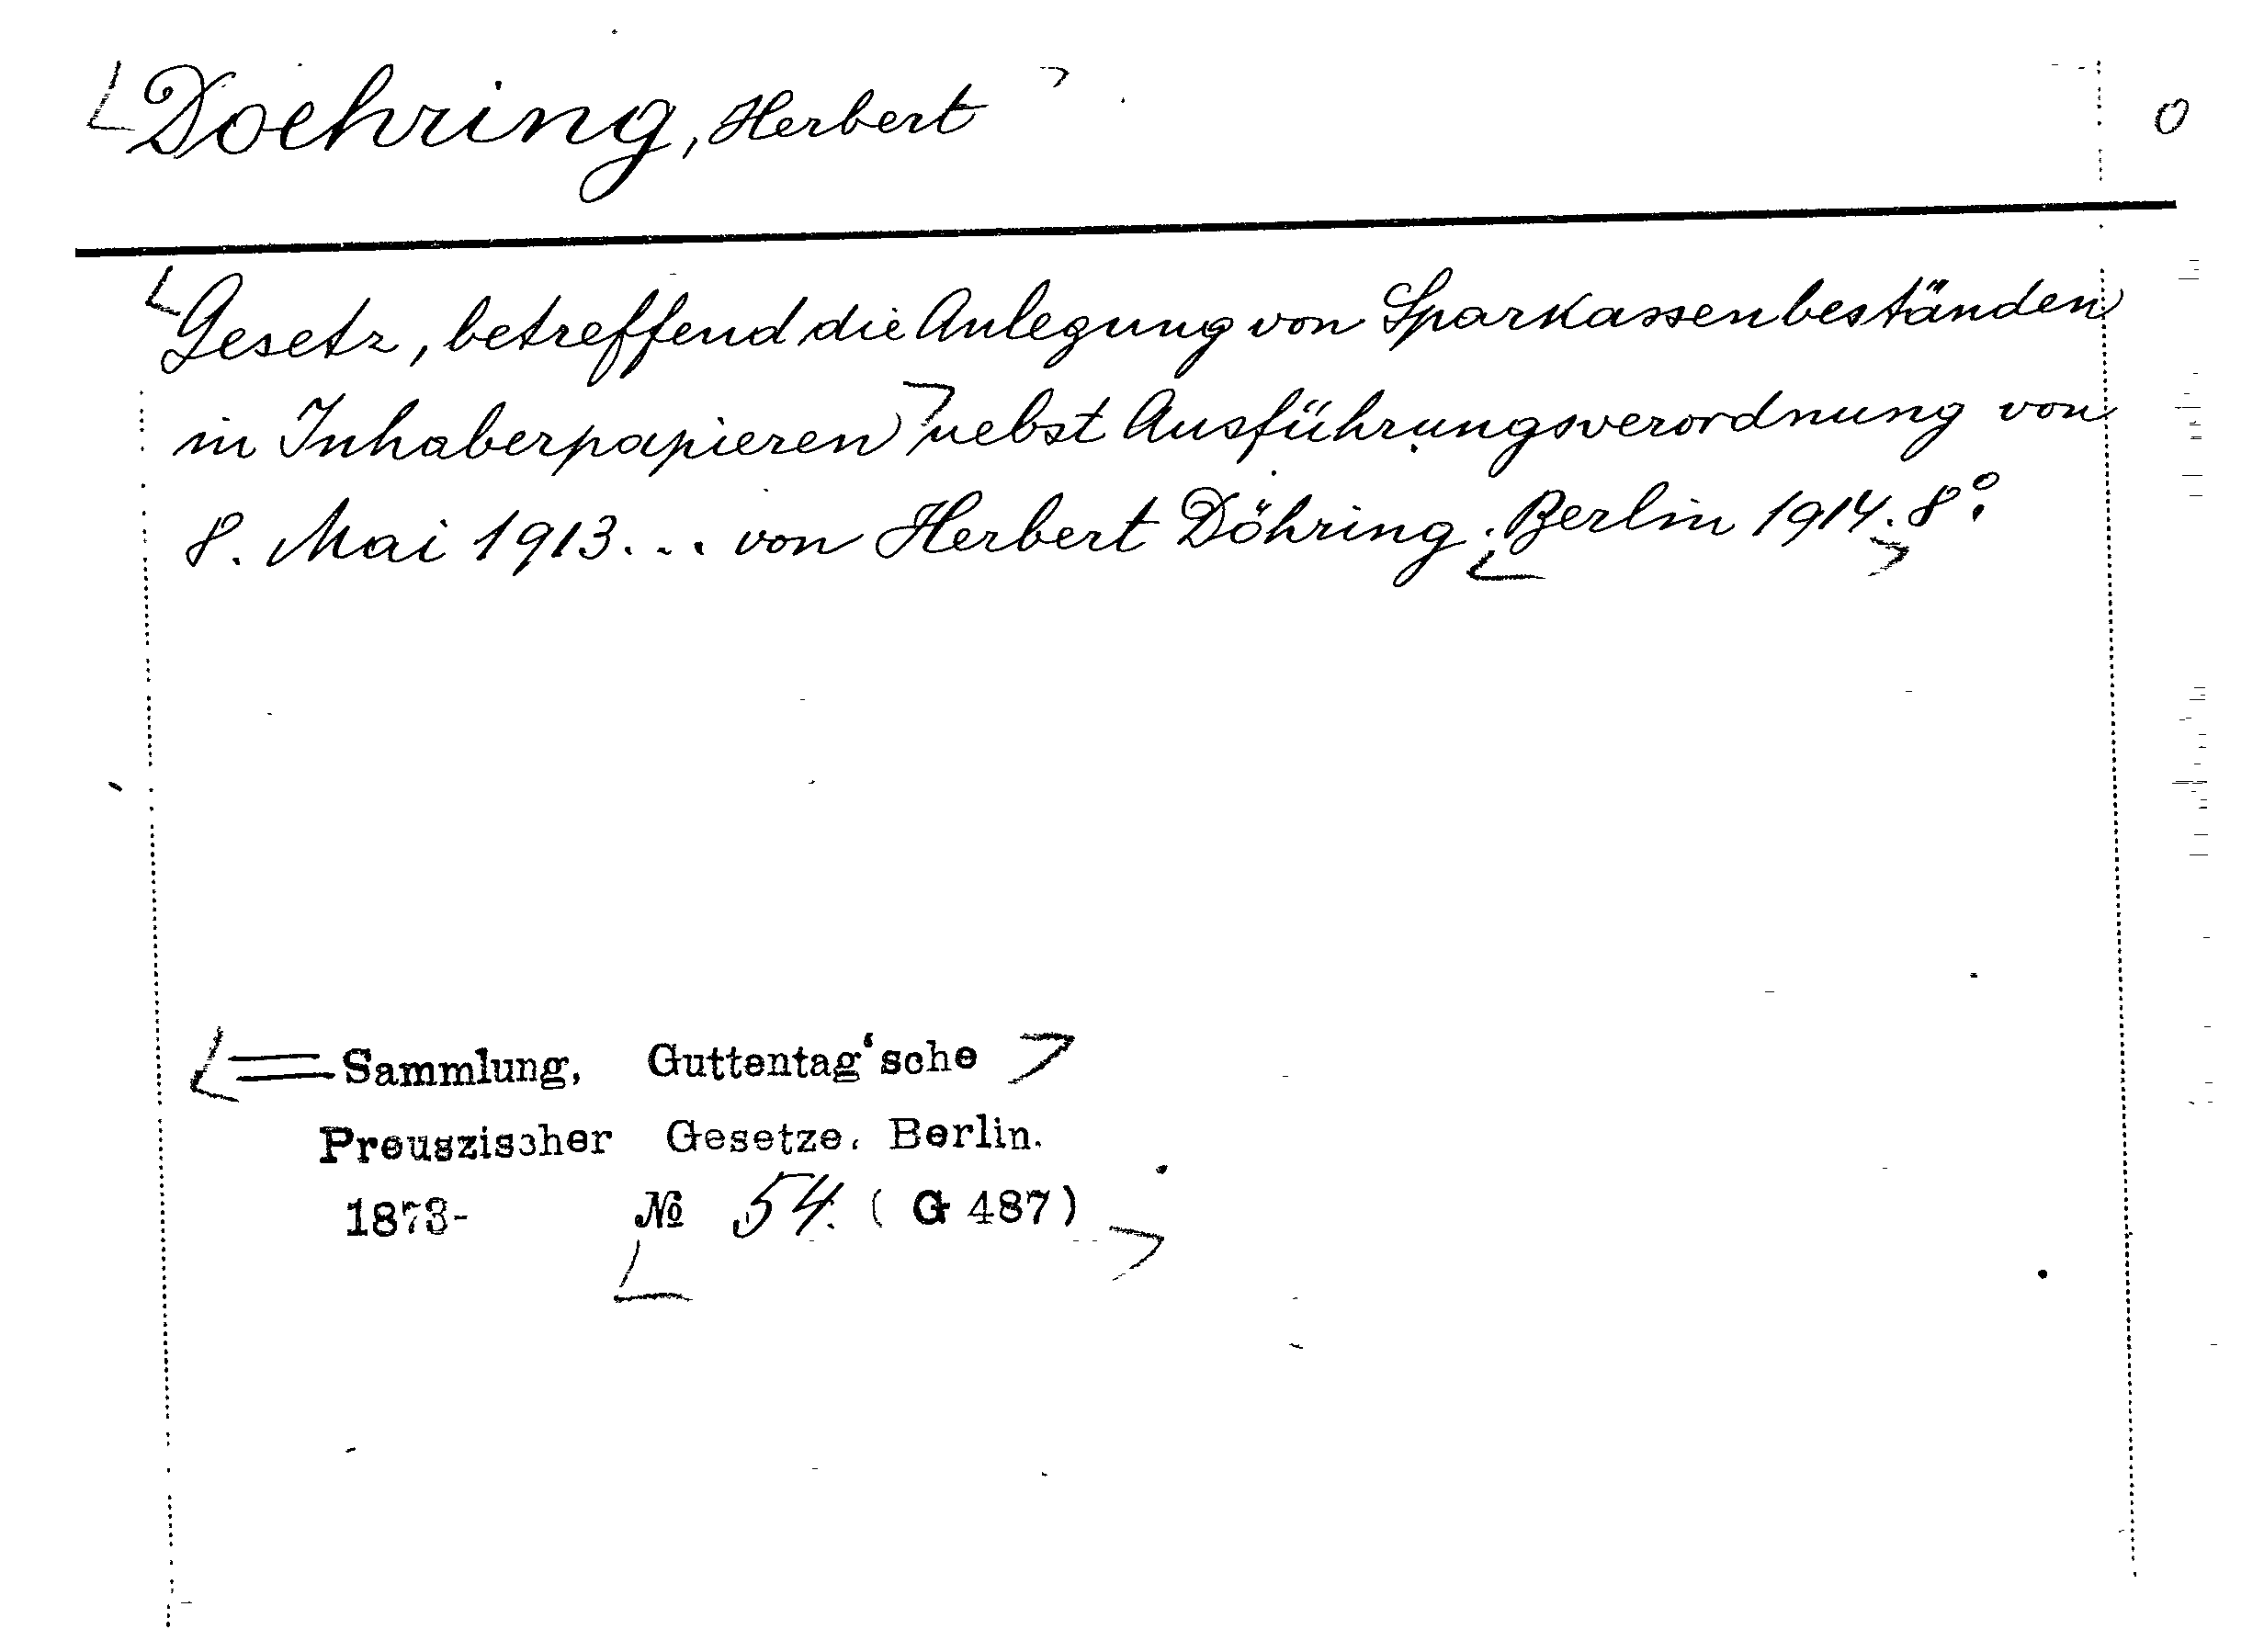 Doehring, Herbert
O
Gesetz, betreffend die Anlegung von Sparkassenbeständen
in Inhaberpapieren nebst Ausführungsverordnung von
8. Mai 1913... von Herbert Döhring. Berlin 1914. 8°.
= Sammlung, Guttentag'sche
Preuszischer Gesetze. Berlin.
1873- № 54. (G 487)